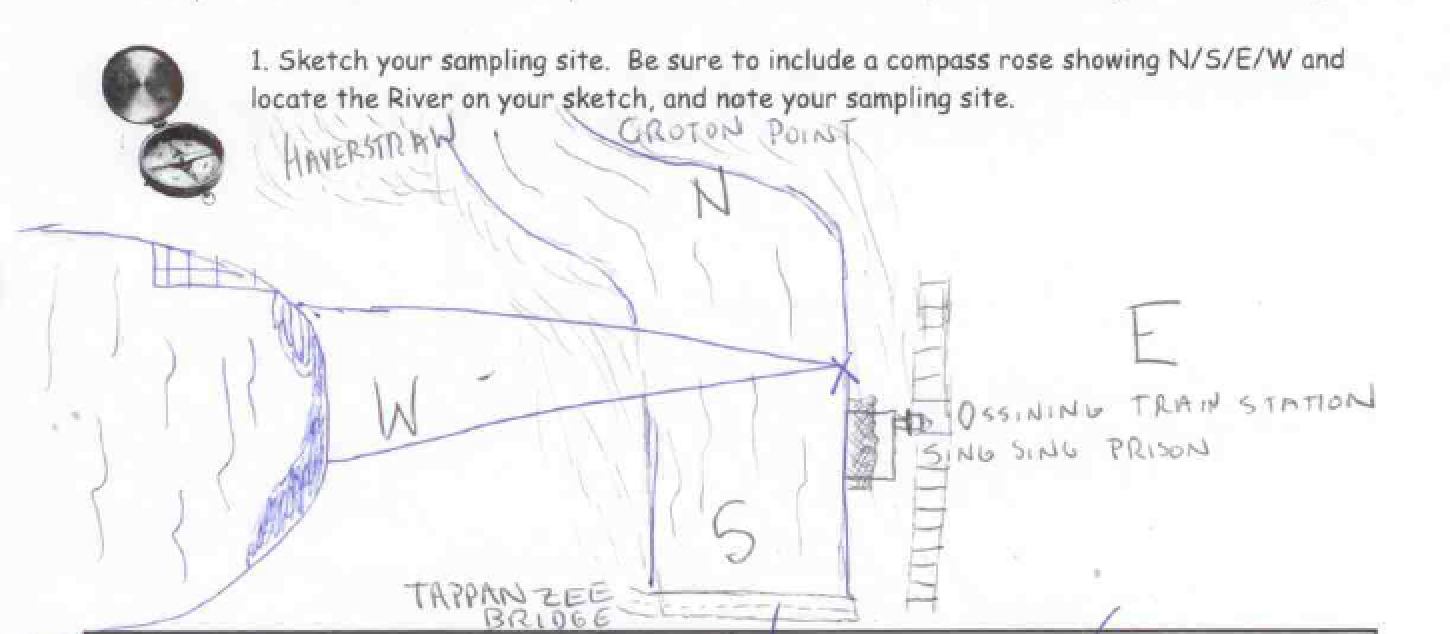 1. Sketch your sampling site. Be sure to include a compass rose showing N/S/E/W and
locate the River on your sketch, and note your sampling site.
HAVERSTRAW
CROTON POINT
N
E
W
OSSINING TRAIN STATION
SING SING PRISON
S
TAPPAN ZEE
BRIDGE